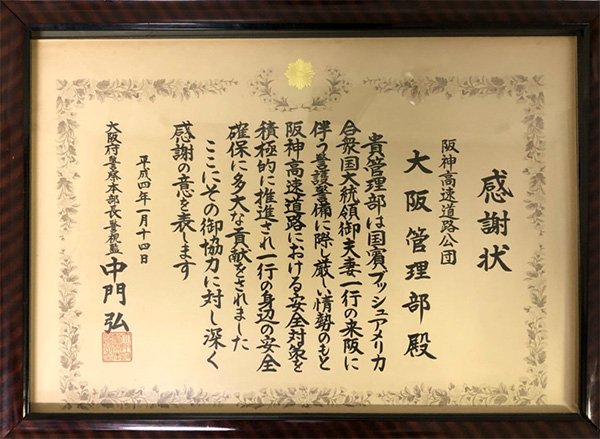 感謝状
阪神高速道路公団
大阪管理部殿
貴管理部は国賓ブッシュアメリカ
合衆国大統領御夫妻一行の来阪に
伴う警護警備に際し厳しい情勢のもと
阪神高速道路における安全対策を
積極的に推進され一行の身辺の安全
確保に多大な貢献をされました
ここにその御協力に対し深く
感謝の意を表します
平成四年一月十四日
大阪府警察本部長警視監 中門弘